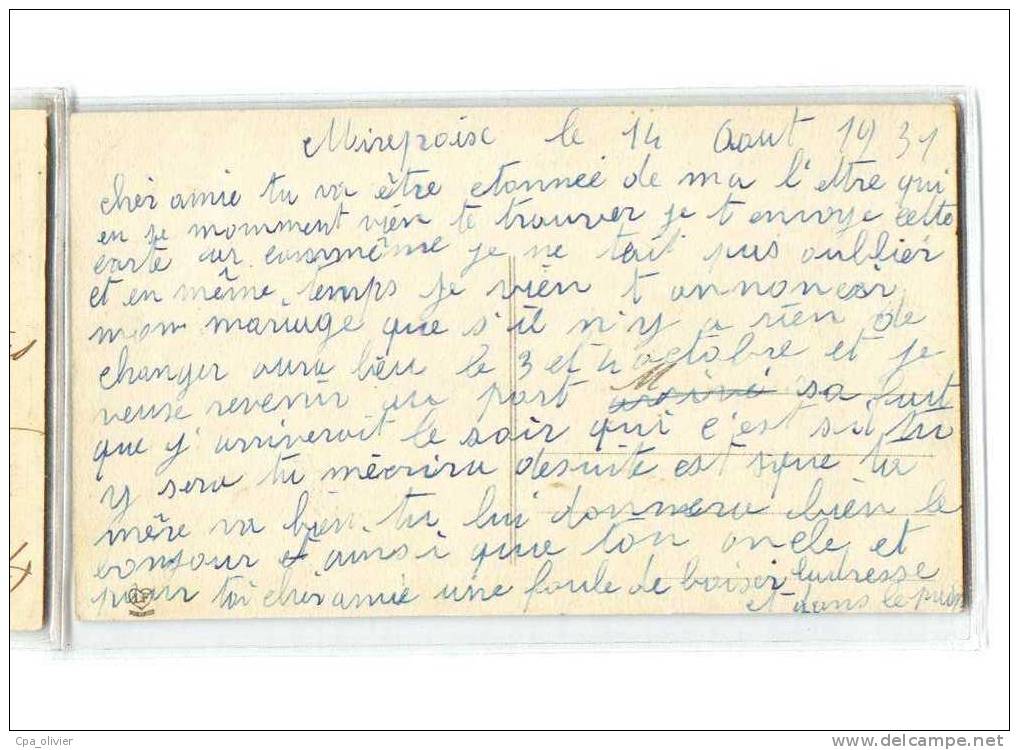 Mirepoise le 14 Aout 1931
cher amie tu va être etonnée de ma l'ettre qui
en se momment vien te trouver je t envoye cette
carte car commême je ne tait pas oublier
et en même temps je vien t annoncer
mon mariage que s'il n'y a rien de
changer aura lieu le 3 et 4 octobre et je
veuse revenir au part sa faut
que j'arriverait le soir qui c'est si tu
y sera tu mécrira desuite est sque ta
mère va bien. tu lui donnera bien le
bonjour et ainsi que ton oncle et
pour toi cher amie une foule de baiser ladresse
et dans le
Cpa_olivier
www.delcampe.net